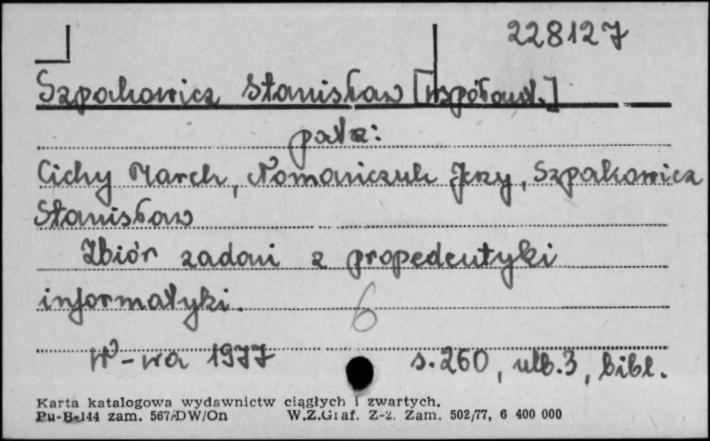 228127
Szpakowicz Stanisław [współaut.]
patz:
Cichy Marek, Nomańczuk Jerzy, Szpakowicz
Stanisław
Zbiór zadań z propedeutyki
informatyki.
6
W-wa 1977 s. 260, ulb. 3, bibl.
Karta katalogowa wydawnictw ciągłych i zwartych.
Pu-B-144 zam. 567/DW/On W.Z.Graf. Z-2. Zam. 502/77, 6 400 000